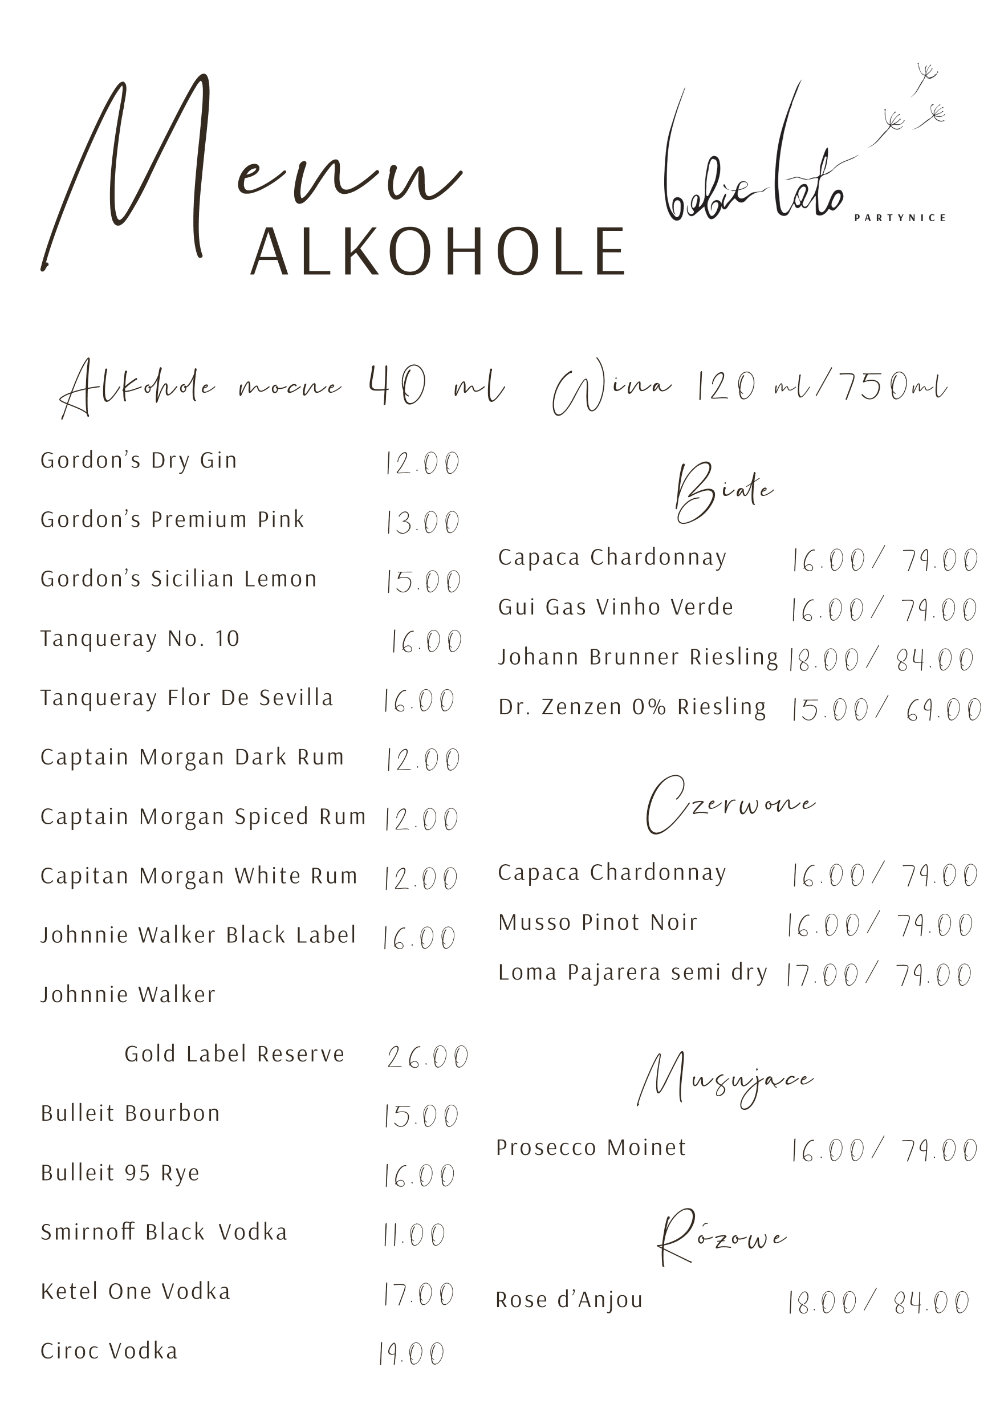 Menu
ALKOHOLE
babie lato
PARTYNICE
Alkohole mocne 40 ml
Gordon's Dry Gin 12.00
Gordon's Premium Pink 13.00
Gordon's Sicilian Lemon 15.00
Tanqueray No. 10 16.00
Tanqueray Flor De Sevilla 16.00
Captain Morgan Dark Rum 12.00
Captain Morgan Spiced Rum 12.00
Capitan Morgan White Rum 12.00
Johnnie Walker Black Label 16.00
Johnnie Walker
Gold Label Reserve 26.00
Bulleit Bourbon 15.00
Bulleit 95 Rye 16.00
Smirnoff Black Vodka 11.00
Ketel One Vodka 17.00
Ciroc Vodka 19.00
Wina 120 ml/750ml
Białe
Capaca Chardonnay 16.00/ 79.00
Gui Gas Vinho Verde 16.00/ 79.00
Johann Brunner Riesling 18.00/ 84.00
Dr. Zenzen 0% Riesling 15.00/ 69.00
Czerwone
Capaca Chardonnay 16.00/ 79.00
Musso Pinot Noir 16.00/ 79.00
Loma Pajarera semi dry 17.00/ 79.00
Musujące
Prosecco Moinet 16.00/ 79.00
Rózowe
Rose d'Anjou 18.00/ 84.00